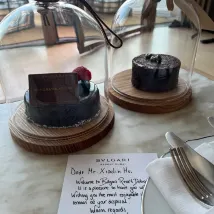 BVLGARI
BVLGARI
Dear Mr. Xiaolin Hu,
Welcome to Bvlgari Resort Dubai
It is a pleasure to have you
Wishing you the most enjoyable
moments at your disposal
Warm regards,